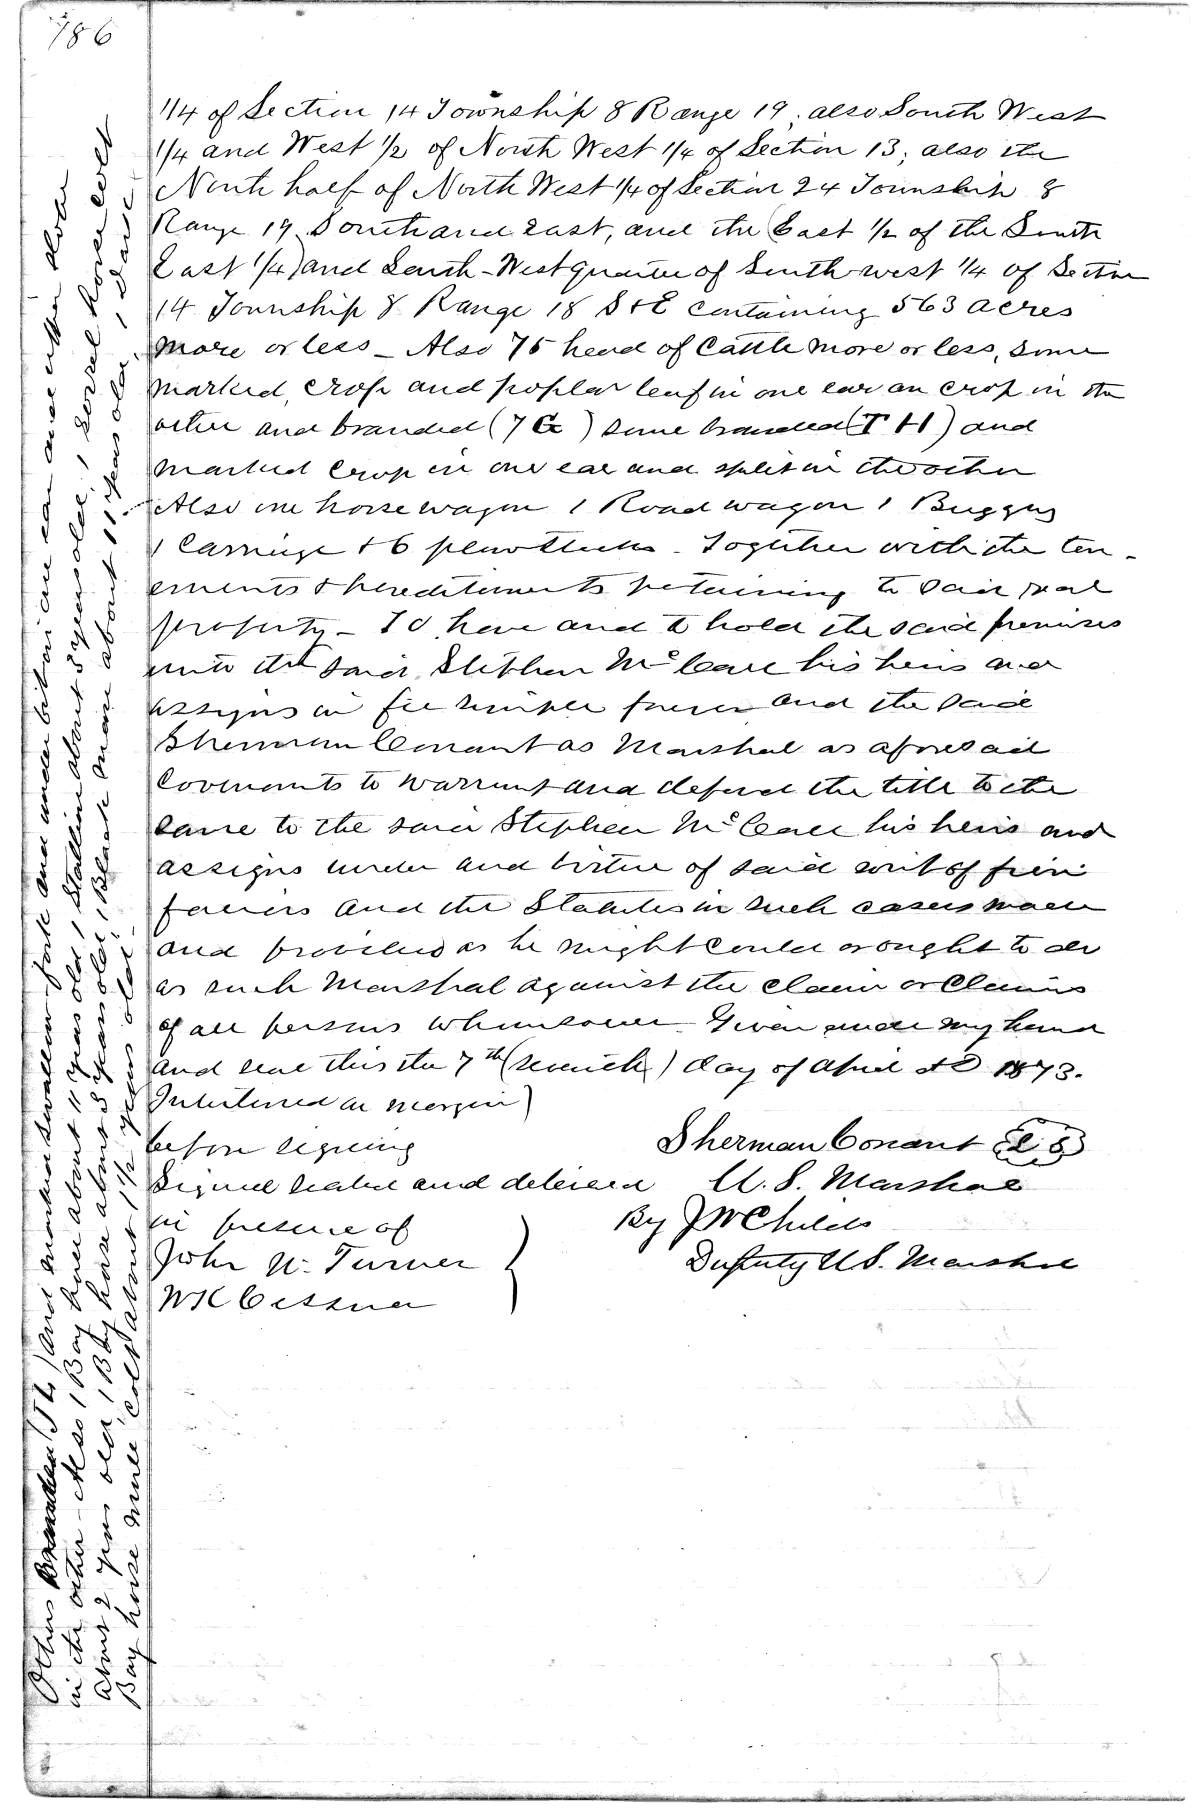 786
1/4 of Section 14 Township 8 Range 19, also South West
1/4 and West 1/2 of North West 1/4 of Section 13, also the
North half of North West 1/4 of Section 24 Township 8
Range 19 South and East, and the (East 1/2 of the South
East 1/4) and South-West quarter of South west 1/4 of Section
14 Township 8 Range 18 S & E containing 563 acres
more or less - Also 75 head of Cattle more or less, some
marked, crop and poplar leaf in one ear an crop in the
other and branded (7 G) some branded (T H) and
marked Crop in one ear and split in the other
Also one horse wagon 1 Road wagon 1 Buggy
1 Carriage & 6 plow Stocks - Together with the ten-
ements & hereditiments pertaining to said real
property - To have and to hold the said premises
unto the said Stephen McCall his heirs and
assigns in fee simple forever and the said
Sherman Conant as Marshal as aforesaid
Covenants to warrant and defend the title to the
same to the said Stephen McCall his heirs and
assigns under and virtue of said writ of fieri
facias and the Statutes in such cases made
and provided as he might could or ought to do
as such Marshal against the claim or Claims
of all persons whomsoever - Given under my hand
and seal this the 7th (seventh) day of April AD 1873.
Interlined in margin)
before signing
Sherman Conant L S
Signed sealed and delivered
U. S. Marshal
in presence of
By J W Childs
John W. Turner
Deputy U S. Marshal
W K Cessna
Others Branded (T L) and marked swallow fork and under bit in one ear and upper
in the other - Also 1 Bay about 11 years old, 1 Stallion about 3 years old, 1 Sorrel horse colt
about 2 years old, 1 Bay horse about 3 years old, 1 Black mare about 11 years old, 1
Bay horse mule colt about 1 1/2 years old -